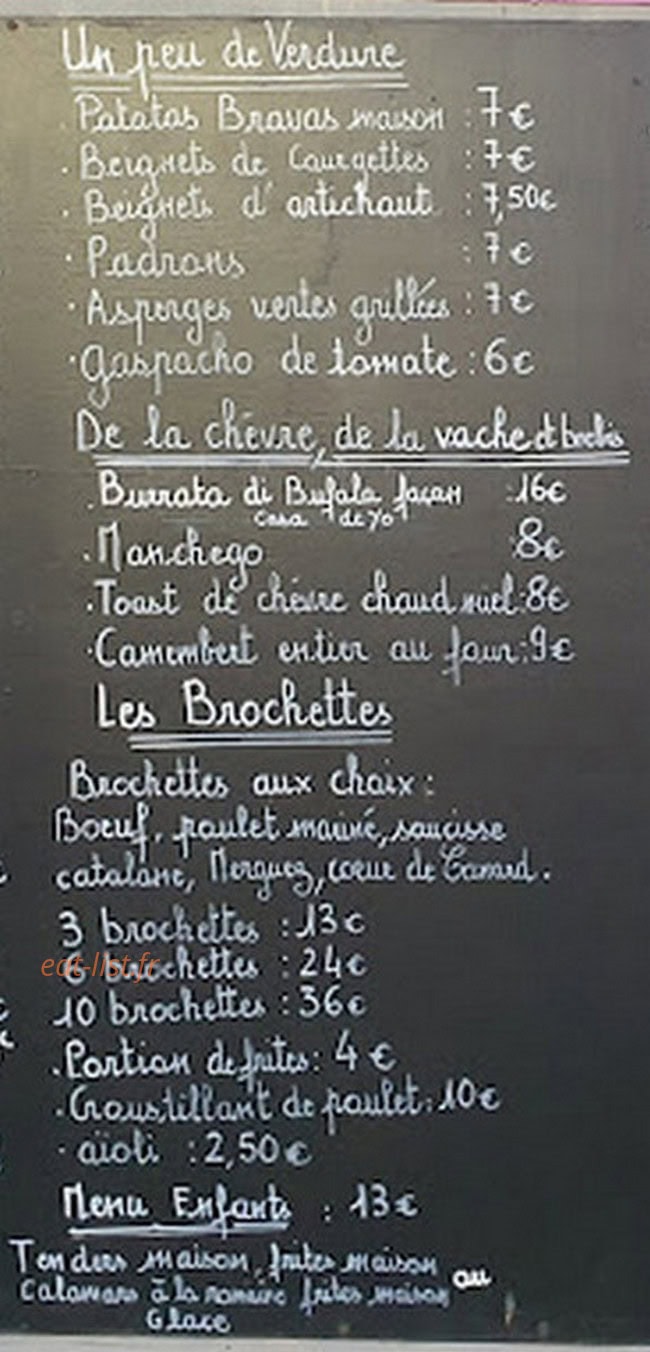 Un peu de Verdure
. Patatas Bravas maison : 7€
. Beignets de Courgettes : 7€
. Beignets d' artichaut : 7,50€
. Padrons : 7€
. Asperges vertes grillées : 7€
. gaspacho de tomate : 6€
De la chèvre, de la vache et brebis
. Burrata di Bufala façon : 16€
casa de yo
. Manchego 8€
. Toast de chèvre chaud miel : 8€
. Camembert entier au four : 9€
Les Brochettes
Brochettes aux choix :
Boeuf, poulet mariné, saucisse
catalane, Merguez, coeur de Canard.
3 brochettes : 13€
6 brochettes : 24€
eat-list.fr
10 brochettes : 36€
. Portion de frites : 4 €
. Croustillant de poulet : 10€
. aïoli : 2,50€
Menu Enfants : 13€
Tenders maison, frites maison ou
Calamars à la romaine frites maison
Glace